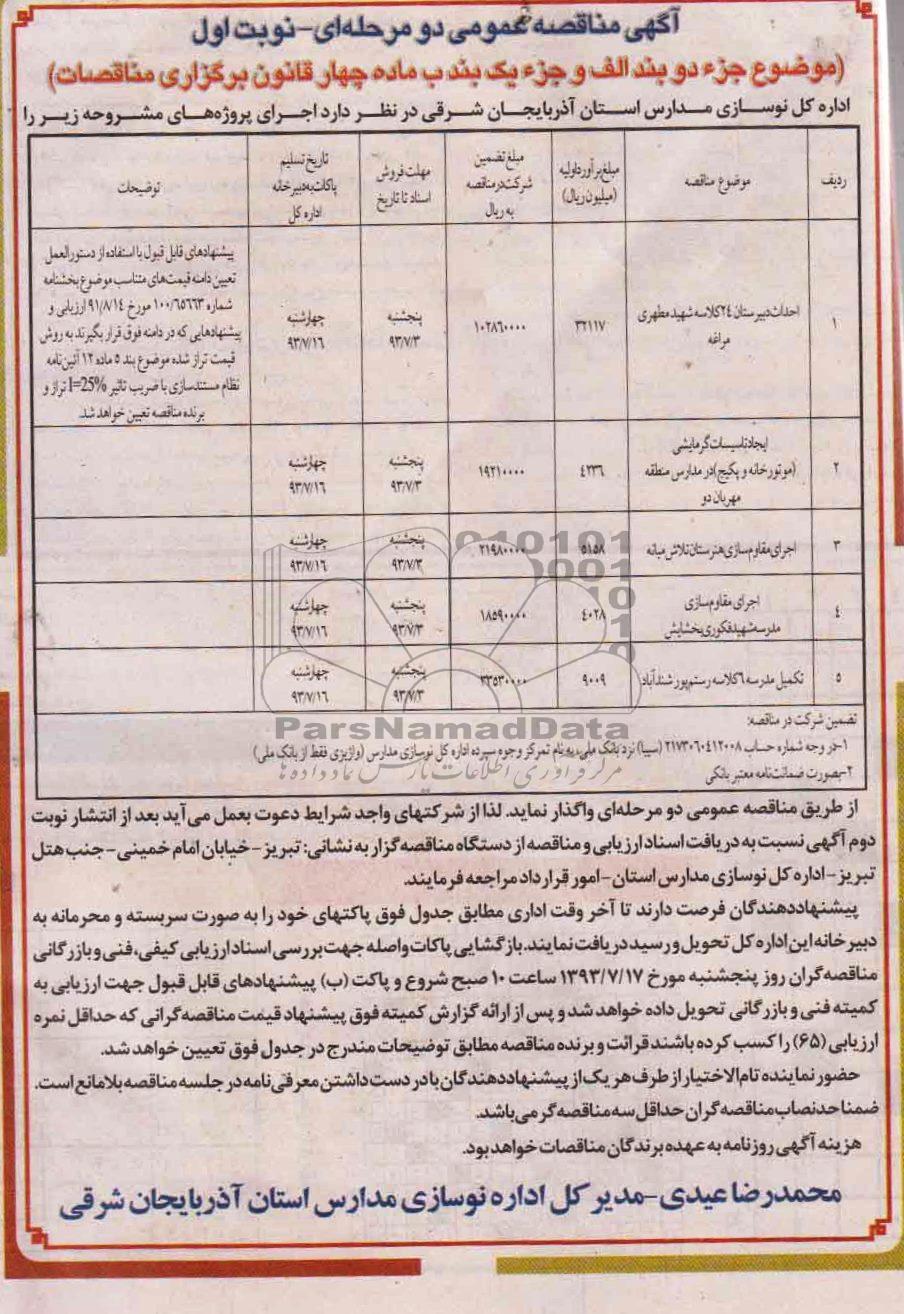 آگهی مناقصه عمومی دو مرحله‌ای-نوبت اول
(موضوع جزء دو بند الف و جزء یک بند ب ماده چهار قانون برگزاری مناقصات)
اداره کل نوسازی مدارس استان آذربایجان شرقی در نظر دارد اجرای پروژه‌های مشروحه زیر را
ردیف
موضوع مناقصه
مبلغ برآورد اولیه
(میلیون ریال)
مبلغ تضمین
شرکت در مناقصه
به ریال
مهلت فروش
اسناد تا تاریخ
تاریخ تسلیم
پاکات به دبیرخانه
اداره کل
توضیحات
۱
احداث دبیرستان ۲٤کلاسه شهید مطهری
مراغه
۳۲۱۱۷
۱۰۲۸٦۰۰۰۰
پنجشنبه
۹۳/۷/۳
چهارشنبه
۹۳/۷/۱٦
پیشنهادهای قابل قبول با استفاده از دستورالعمل
تعیین دامنه قیمت‌های متناسب موضوع بخشنامه
شماره ۱۰۰/٦٥٦٦۳ مورخ ۹۱/۸/۱٤ ارزیابی و
پیشنهادهایی که در دامنه فوق قرار بگیرند به روش
قیمت تراز شده موضوع بند ٥ ماده ۱۲ آئین‌نامه
نظام مستندسازی با ضریب تاثیر I=25% تراز و
برنده مناقصه تعیین خواهد شد.
۲
ایجاد تاسیسات گرمایشی
(موتورخانه و پکیج) در مدارس منطقه
مهربان دو
٤۲۳٦
۱۹۲۱۰۰۰۰
پنجشنبه
۹۳/۷/۳
چهارشنبه
۹۳/۷/۱٦
۳
اجرای مقاوم‌سازی هنرستان تلاش میانه
٥۱٥۸
۲۱۹۸۰۰۰۰
پنجشنبه
۹۳/۷/۳
چهارشنبه
۹۳/۷/۱٦
٤
اجرای مقاوم‌سازی
مدرسه شهید فکوری بخشایش
٤۰۲۸
۱۸٥۹۰۰۰۰
پنجشنبه
۹۳/۷/۳
چهارشنبه
۹۳/۷/۱٦
٥
تکمیل مدرسه ٦کلاسه رستم‌پور شندآباد
۹۰۰۹
۳۳٥۳۰۰۰۰
پنجشنبه
۹۳/۷/۳
چهارشنبه
۹۳/۷/۱٦
ParsNamadData
مرکز فرآوری اطلاعات پارس نماد داده ها
تضمین شرکت در مناقصه:
۱-در وجه شماره حساب ۲۱۷۳۰٦۰٤۱۲۰۰۸ (سیبا) نزد بانک ملی، به نام تمرکز وجوه سپرده اداره کل نوسازی مدارس (واریزی فقط از بانک ملی)
۲-بصورت ضمانت‌نامه معتبر بانکی
از طریق مناقصه عمومی دو مرحله‌ای واگذار نماید. لذا از شرکتهای واجد شرایط دعوت بعمل می‌آید بعد از انتشار نوبت
دوم آگهی نسبت به دریافت اسناد ارزیابی و مناقصه از دستگاه مناقصه‌گزار به نشانی: تبریز-خیابان امام خمینی-جنب هتل
تبریز-اداره کل نوسازی مدارس استان-امور قرارداد مراجعه فرمایند.
پیشنهاددهندگان فرصت دارند تا آخر وقت اداری مطابق جدول فوق پاکتهای خود را به صورت سربسته و محرمانه به
دبیرخانه این اداره کل تحویل و رسید دریافت نمایند. بازگشایی پاکات واصله جهت بررسی اسناد ارزیابی کیفی، فنی و بازرگانی
مناقصه‌گران روز پنجشنبه مورخ ۱۳۹۳/۷/۱۷ ساعت ۱۰ صبح شروع و پاکت (ب) پیشنهادهای قابل قبول جهت ارزیابی به
کمیته فنی و بازرگانی تحویل داده خواهد شد و پس از ارائه گزارش کمیته فوق پیشنهاد قیمت مناقصه‌گرانی که حداقل نمره
ارزیابی (۶۵) را کسب کرده باشند قرائت و برنده مناقصه مطابق توضیحات مندرج در جدول فوق تعیین خواهد شد.
حضور نماینده تام‌الاختیار از طرف هر یک از پیشنهاددهندگان با در دست داشتن معرفی‌نامه در جلسه مناقصه بلامانع است.
ضمنا حدنصاب مناقصه‌گران حداقل سه مناقصه‌گر می‌باشد.
هزینه آگهی روزنامه به عهده برندگان مناقصات خواهد بود.
محمدرضا عیدی-مدیر کل اداره نوسازی مدارس استان آذربایجان شرقی